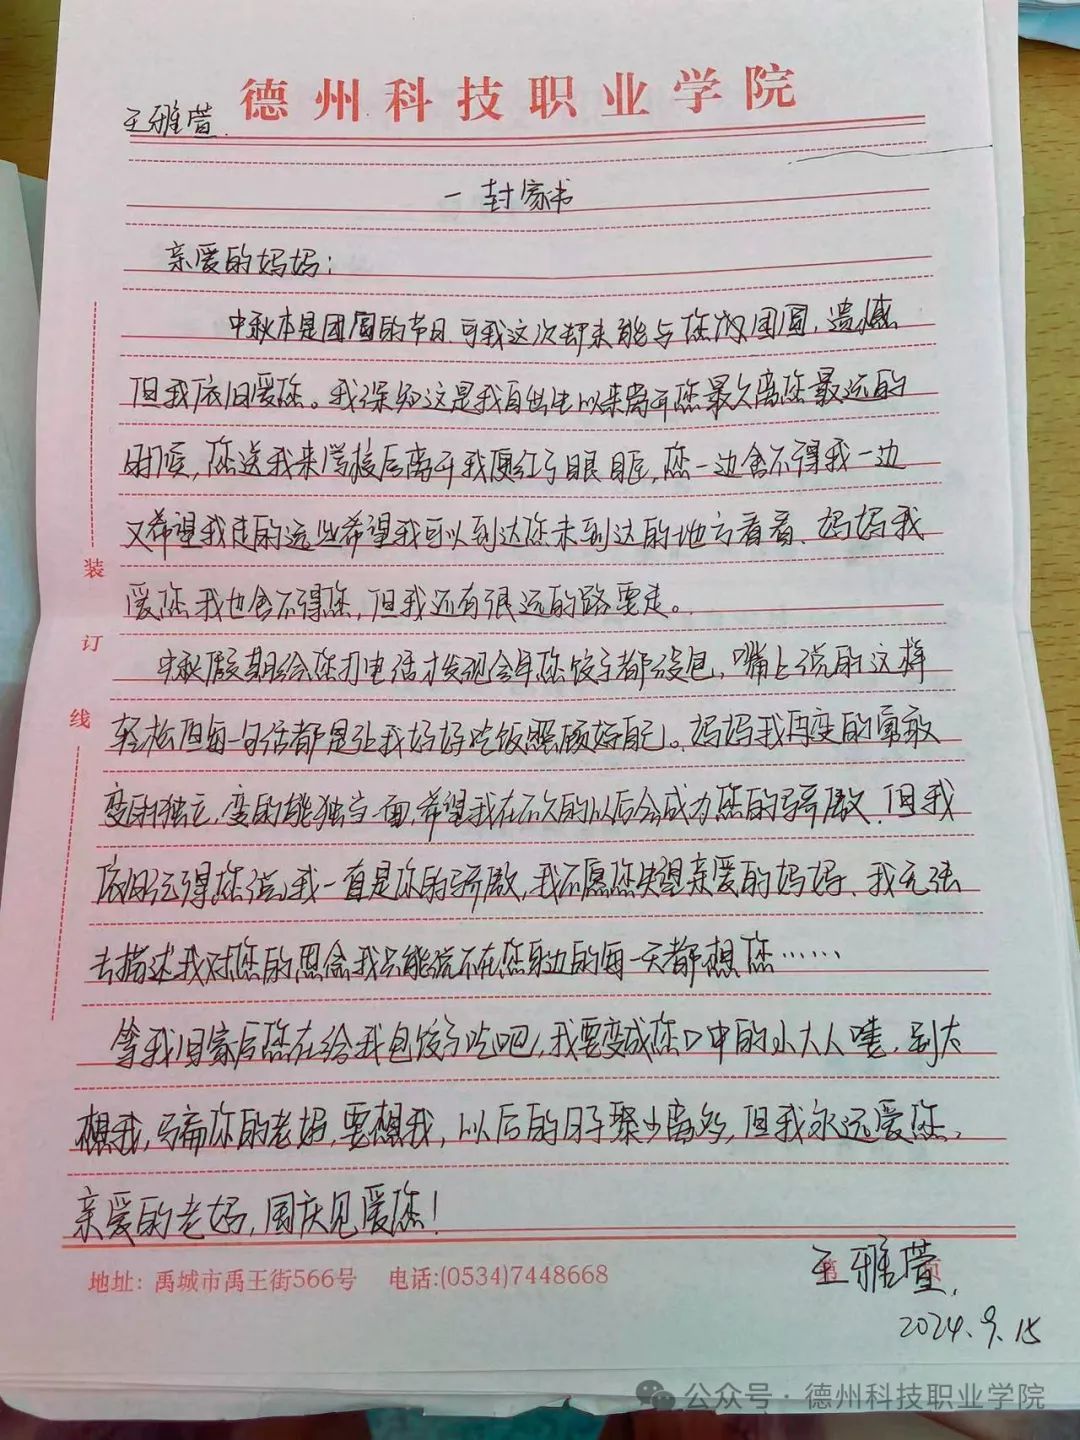 德州科技职业学院
王雅萱
一封家书
亲爱的妈妈：
中秋本是团圆的节日,可我这次却未能与您们团圆，遗憾
但我依旧爱您。我深知这是我自出生以来离开您最久离您最远的
时候，您送我来学校后离开我便红了眼眶，您一边舍不得我一边
又希望我走的远些希望我可以到达您未到达的地方看看、妈妈我
爱您我也舍不得您，但我还有很远的路要走。
中秋假期给您打电话才发现今年您饺子都没包，嘴上说的这样
轻松但每一句话都是让我好好吃饭照顾好自己。妈妈我再变的勇敢
变的独立,变的能独当一面,希望我在不久的以后会成为您的骄傲.但我
依旧记得您说,我一直是你的骄傲,我不愿您失望亲爱的妈妈、我无法
去描述我对您的思念我只能说不在您身边的每一天都想您……
等我回家后您在给我包饺子吃吧,我要变成您口中的小大人喽,别太
想我,我的老妈,要想我，以后的日子聚少离多,但我永远爱您、
亲爱的老妈,国庆见爱您！
装
订
线
地址: 禹城市禹王街566号 电话:(0534)7448668
王雅萱.
2024.9.15
公众号·德州科技职业学院